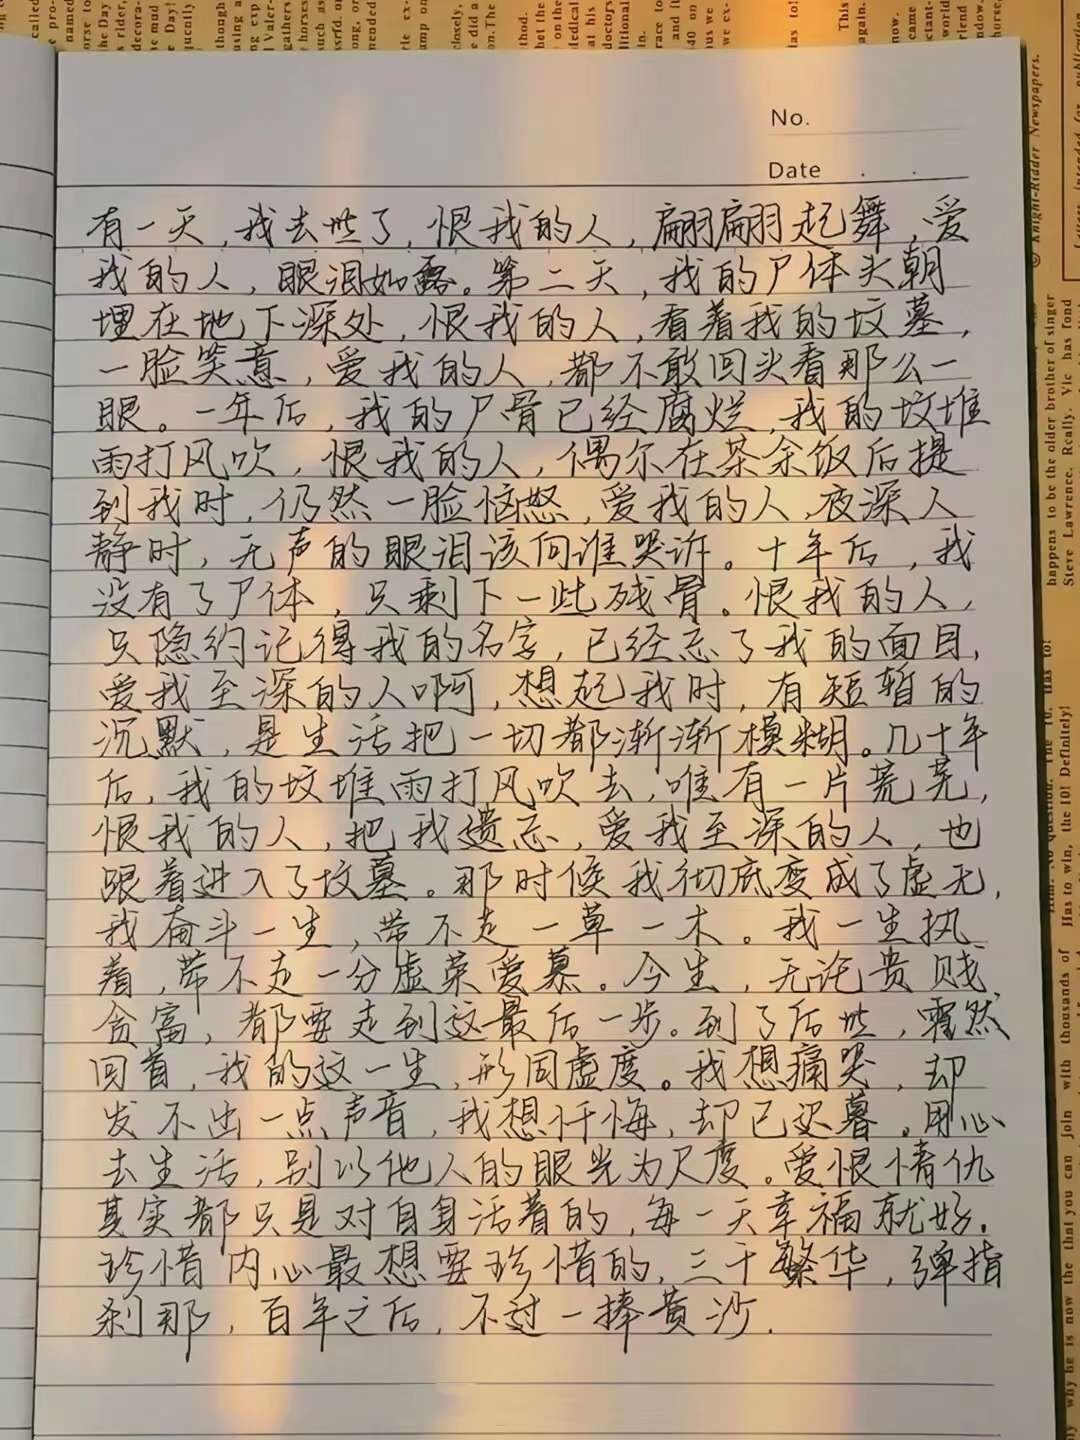 No.
Date
有一天,我去世了,恨我的人,翩翩起舞,爱
我的人,眼泪如露。第二天,我的尸体头朝
埋在地下深处,恨我的人,看着我的坟墓,
一脸笑意,爱我的人,都不敢回头看那么一
眼。一年后,我的尸骨已经腐烂,我的坟堆
雨打风吹,恨我的人,偶尔在茶余饭后提
到我时,仍然一脸恼怒,爱我的人,夜深人
静时,无声的眼泪该向谁哭诉。十年后,我
没有了尸体,只剩下一些残骨。恨我的人,
只隐约记得我的名字,已经忘了我的面目,
爱我至深的人啊,想起我时,有短暂的
沉默,是生活把一切都渐渐模糊。几十年
后,我的坟堆雨打风吹去,唯有一片荒芜,
恨我的人,把我遗忘,爱我至深的人,也
跟着进入了坟墓。那时候我彻底变成了虚无,
我奋斗一生,带不走一草一木。我一生执
着,带不走一分虚荣爱慕。今生,无论贵贱
贪富,都要走到这最后一步。到了后世,霍然
回首,我的这一生,形同虚度。我想痛哭,却
发不出一点声音,我想忏悔,却已迟暮。用心
去生活,别以他人的眼光为尺度。爱恨情仇
其实都只是对自身活着的,每一天幸福就好。
珍惜内心最想要珍惜的,三千繁华,弹指
刹那,百年之后,不过一捧黄沙.
© Knight-Ridder Newspapers.
happens to be the older brother of singer
Steve Lawrence. Really. Vic has fond
Has to win, the 10! Definitely!
join with thousands of
that you can
why he is now the